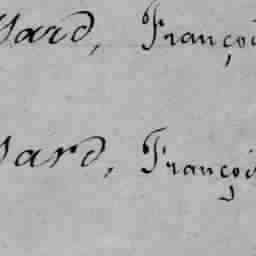 yard, Françoi
yard, Françoi